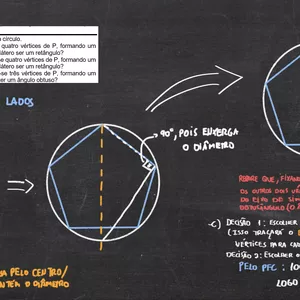 círculo.
quatro vértices de P, formando um
látero ser um retângulo?
e quatro vértices de P, formando um
látero ser um retângulo?
-se três vértices de P, formando um
er um ângulo obtuso?
LADOS
90°, POIS ENXERGA
O DIÂMETRO
REPARE QUE, FIXAN
OS OUTROS DOIS VÉ
DO EIXO DE SIM
OBTUSÂNGULO (O Â
c) DECISÃO 1: ESCOLHER
(ISSO TRAÇARÁ O
VÉRTICES PARA CA
DECISÃO 2: ESCOLHER O
PELO PFC: 10
LOGO
PELO CENTRO/
O DIÂMETRO